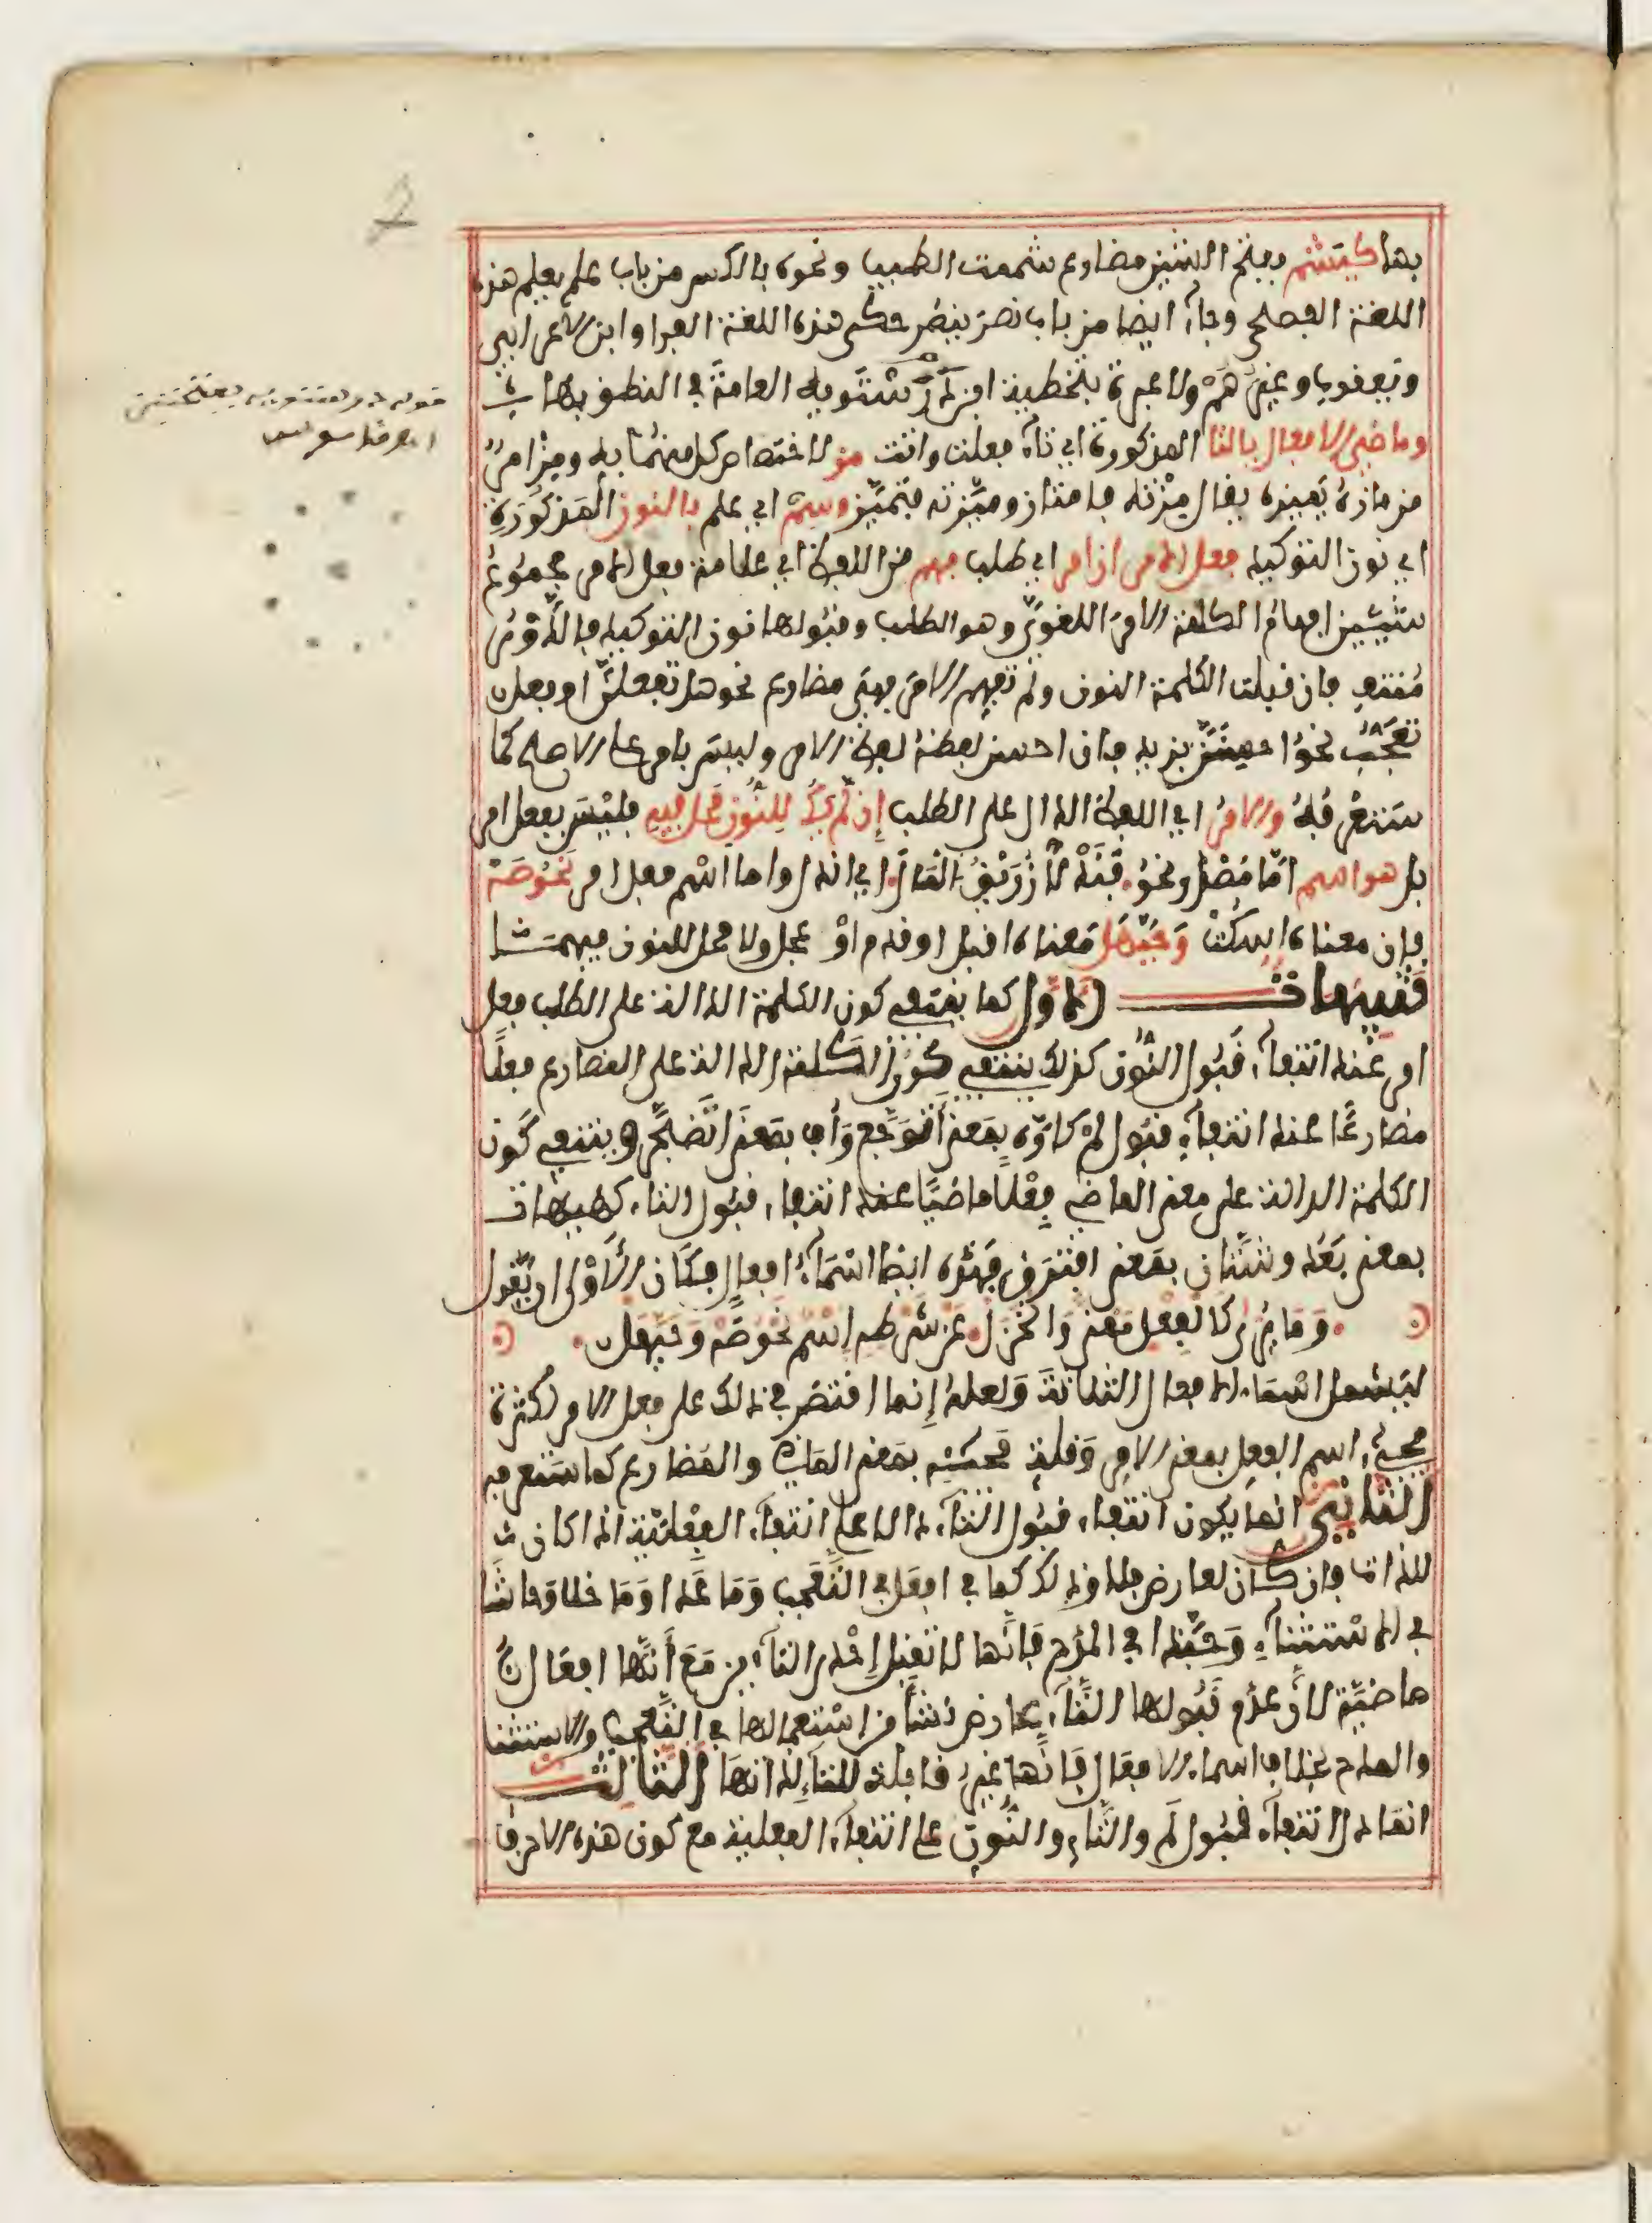 بها كيشم بفتح الشين مضارع شممت الطيب ونحوه بالكسر من باب علم يعلم هذه
اللغة الفصحى وجاء ايضا من باب نصر ينصر حكى هذه اللغة الفرا وابن الاعرابي
ويعقوب وغيرهم ولا عبرة بتخطية ابن درستويه العامة في النطق بها
وماضي الافعال بالتا المذكورة اي تاء فعلت واتت مز لاختصاص كل منهما به ومز امر
من مازه يميزه يقال مزته فامتاز وميزته فتميز وسم اي علم بالنون المذكورة
اي نون التوكيد فعل الامر ان امر اي طلب فهم من اللفظ اي علامة فعل الامر مجموع
شيئين افهام الكلمة الامر اللغوي وهو الطلب وقبولها نون التوكيد فالدال
منتف فان قبلت الكلمة النون ولم تفهم الامر فهي مضارع نحو هل تفعلن او فعل
تعجب نحو احسنن بزيد فان احسن لفظه لفظ الامر وليس بامر على الاصح كما
ستعرفه والامر اي اللفظ الدال على الطلب إن لم يك للنون محل فيه فليس بفعل امر
بل هو اسم اما مصدر نحو فندلا زريق المال اي اندل واما اسم فعل امر نحو صه
فان معناه اسكت وحيهل معناه اقبل او قدم او عجل ولا محل للنون فيهما
تنبيهات الاول كما ينتفي كون الكلمة الدالة على الطلب فعل
امر عند انتفاء قبول النون كذلك ينتفي كون الكلمة الدالة على المضارع فعلا
مضارعا عند انتفاء قبول لم كاوه بمعنى أتوجع وأف بمعنى اتضجر وينتفي كون
الكلمة الدالة على معنى الماضي فعلا ماضيا عند انتفاء قبول التاء كهيهات
بمعنى بعد وشتان بمعنى افترق فهذه ايضا اسماء افعال فكان الأولى ان يقول
وما يرى كالفعل معنى وانخزل عن شرطه اسم نحو صه وحيهل
ليشمل اسماء الافعال الثلاثة ولعله إنما اقتصر في ذلك على فعل الامر لكثرة
مجيء اسم الفعل بمعنى الامر وقلة مجيئه بمعنى الماضي والمضارع كما ستعرفه
الثاني انما يكون انتفاء قبول التاء دالا على انتفاء الفعلية اذا كان
للذات فان كان لعارض فلا وذلك كما في افعل في التعجب وما عدا وما خلا وحاشا
في الاستثناء وحبذا في المدح فانها لا تقبل إحدى التاءين مع أنها افعال
ماضية لان عدم قبولها التاء عارض نشأ من استعمالها في التعجب والاستثنا
والمدح بخلاف اسماء الافعال فانها غير قابلة للتاء لذاتها الثالث
انما دل انتفاء قبول لم والتاء والنون على انتفاء الفعلية مع كون هذه الاحرف